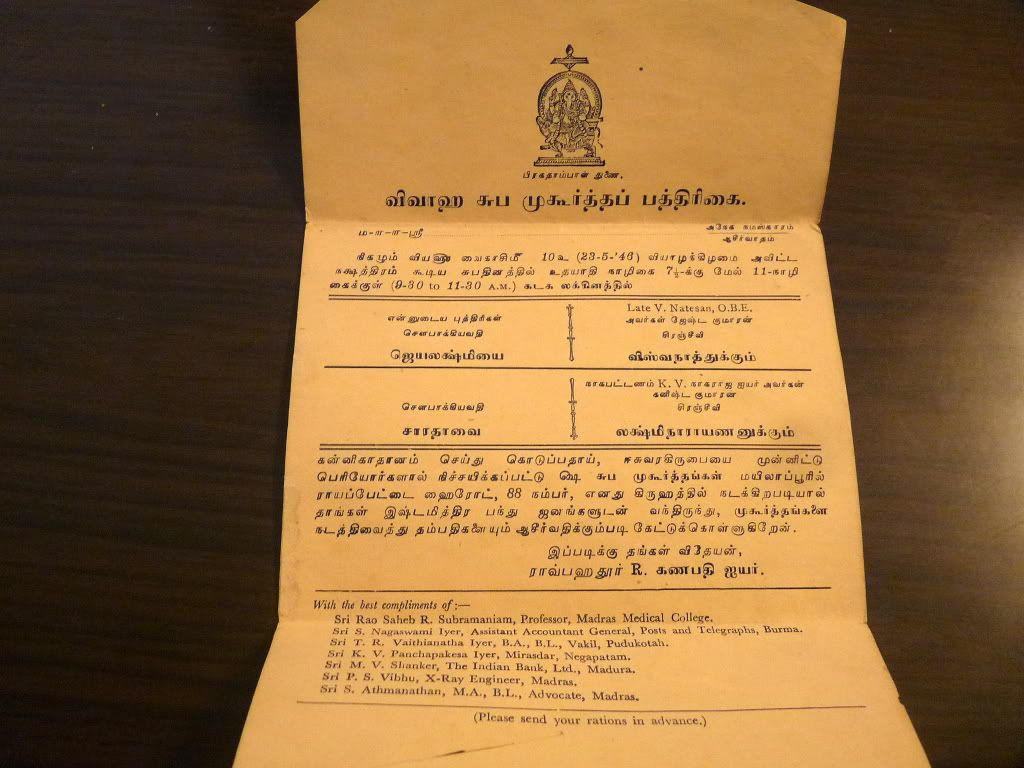 பிரகதாம்பாள் துணை.
விவாஹ சுப முகூர்த்தப் பத்திரிகை.
ம-ள-ள-ஸ்ரீ
அநேக நமஸ்காரம்
ஆசீர்வாதம்
நிகழும் வியஹு வைகாசிமீ 10உ (23-5-'46) வியாழக்கிழமை அவிட்ட
நக்ஷத்திரம் கூடிய சுபதினத்தில் உதயாதி நாழிகை 7½-க்கு மேல் 11-நாழி
கைக்குள் (9-30 to 11-30 A.M.) கடக லக்கினத்தில்
என்னுடைய புத்திரிகள்
சௌபாக்கியவதி
ஜெயலக்ஷ்மியை
Late V. Natesan, O.B.E.
அவர்கள் ஜேஷ்ட குமாரன்
சிரஞ்சீவி
விஸ்வநாத்துக்கும்
சௌபாக்கியவதி
சாரதாவை
நாகபட்டணம் K. V. நாகராஜ ஐயர் அவர்கள்
கனிஷ்ட குமாரன்
சிரஞ்சீவி
லக்ஷ்மிநாராயணனுக்கும்
கன்னிகாதானம் செய்து கொடுப்பதாய், ஈசுவரகிருபையை முன்னிட்டு
பெரியோர்களால் நிச்சயிக்கப்பட்டு ௸ சுப முகூர்த்தங்கள் மயிலாப்பூரில்
ராயப்பேட்டை ஹைரோட், 88 நம்பர், எனது கிருஹத்தில் நடக்கிறபடியால்
தாங்கள் இஷ்டமித்திர பந்து ஜனங்களுடன் வந்திருந்து, முகூர்த்தங்களை
நடத்திவைத்து தம்பதிகளையும் ஆசீர்வதிக்கும்படி கேட்டுக்கொள்ளுகிறேன்.
இப்படிக்கு தங்கள் விதேயன்,
ராவ்பஹதூர் R. கணபதி ஐயர்.
With the best compliments of :—
Sri Rao Saheb R. Subramaniam, Professor, Madras Medical College.
Sri S. Nagaswami Iyer, Assistant Accountant General, Posts and Telegraphs, Burma.
Sri T. R. Vaithianatha Iyer, B.A., B.L., Vakil, Pudukotah.
Sri K. V. Panchapakesa Iyer, Mirasdar, Negapatam.
Sri M. V. Shanker, The Indian Bank, Ltd., Madura.
Sri P. S. Vibhu, X-Ray Engineer, Madras.
Sri S. Athmanathan, M.A., B.L., Advocate, Madras.
(Please send your rations in advance.)